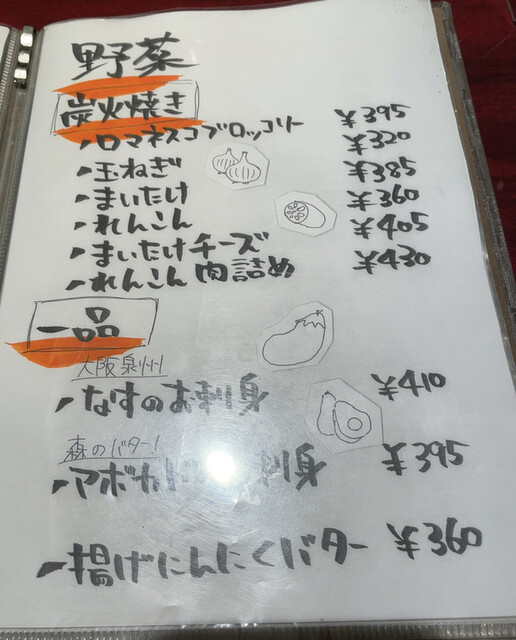 野菜
炭火焼き
ロマネスコブロッコリー ¥395
玉ねぎ ¥320
まいたけ ¥385
れんこん ¥360
まいたけチーズ ¥405
れんこん肉詰め ¥430
一品
大阪泉州
なすのお刺身 ¥410
森のバター!
アボカド 刺身 ¥395
揚げにんにくバター ¥360